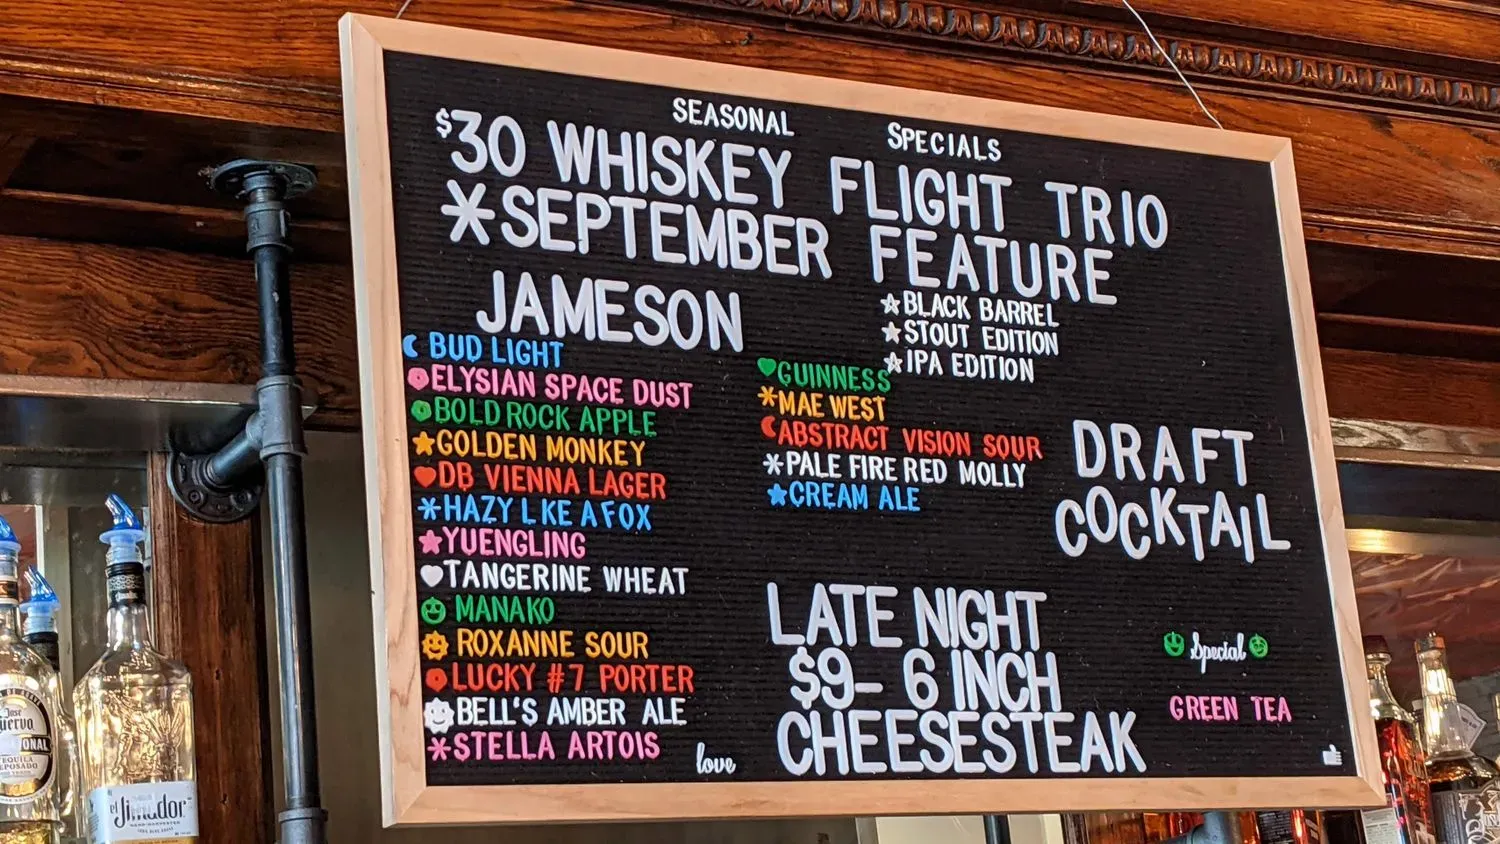 SEASONAL SPECIALS
$30 WHISKEY FLIGHT TRIO
*SEPTEMBER FEATURE
JAMESON
BLACK BARREL
STOUT EDITION
IPA EDITION
BUD LIGHT
ELYSIAN SPACE DUST
BOLD ROCK APPLE
GOLDEN MONKEY
DB VIENNA LAGER
*HAZY L KE A FOX
YUENGLING
TANGERINE WHEAT
MANAKO
ROXANNE SOUR
LUCKY #7 PORTER
BELL'S AMBER ALE
*STELLA ARTOIS
love
GUINNESS
*MAE WEST
ABSTRACT VISION SOUR
*PALE FIRE RED MOLLY
CREAM ALE
DRAFT
COCKTAIL
LATE NIGHT
$9- 6 INCH
CHEESESTEAK
Special
GREEN TEA
José
Cuervo
TEQUILA
REPOSADO
el Jimador